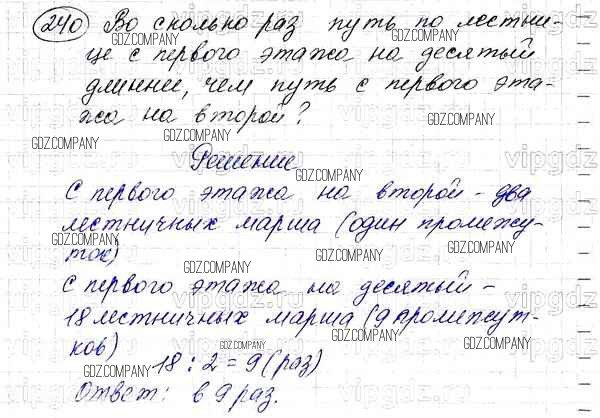 240 Во сколько раз путь по лестни-
це с первого этажа на десятый
длиннее, чем путь с первого эта-
жа на второй?
Решение
С первого этажа на второй - два
лестничных марша (один промежу-
ток)
С первого этажа на десятый -
18 лестничных марша (9 промежут-
ков)
18 : 2 = 9 (раз)
Ответ: в 9 раз.